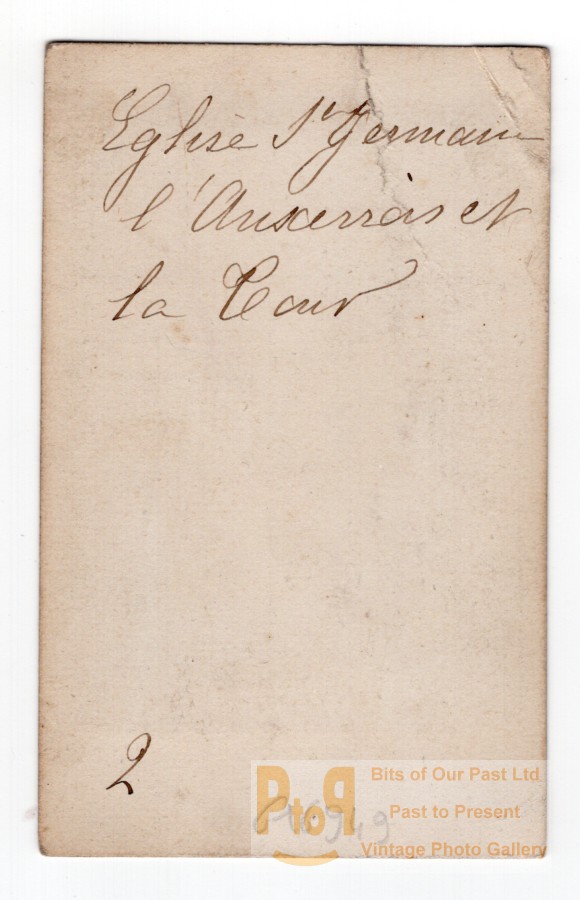 Eglise St Germain
l'Auxerrois et
la Tour
2
PtoP
Bits of Our Past Ltd
Past to Present
Vintage Photo Gallery